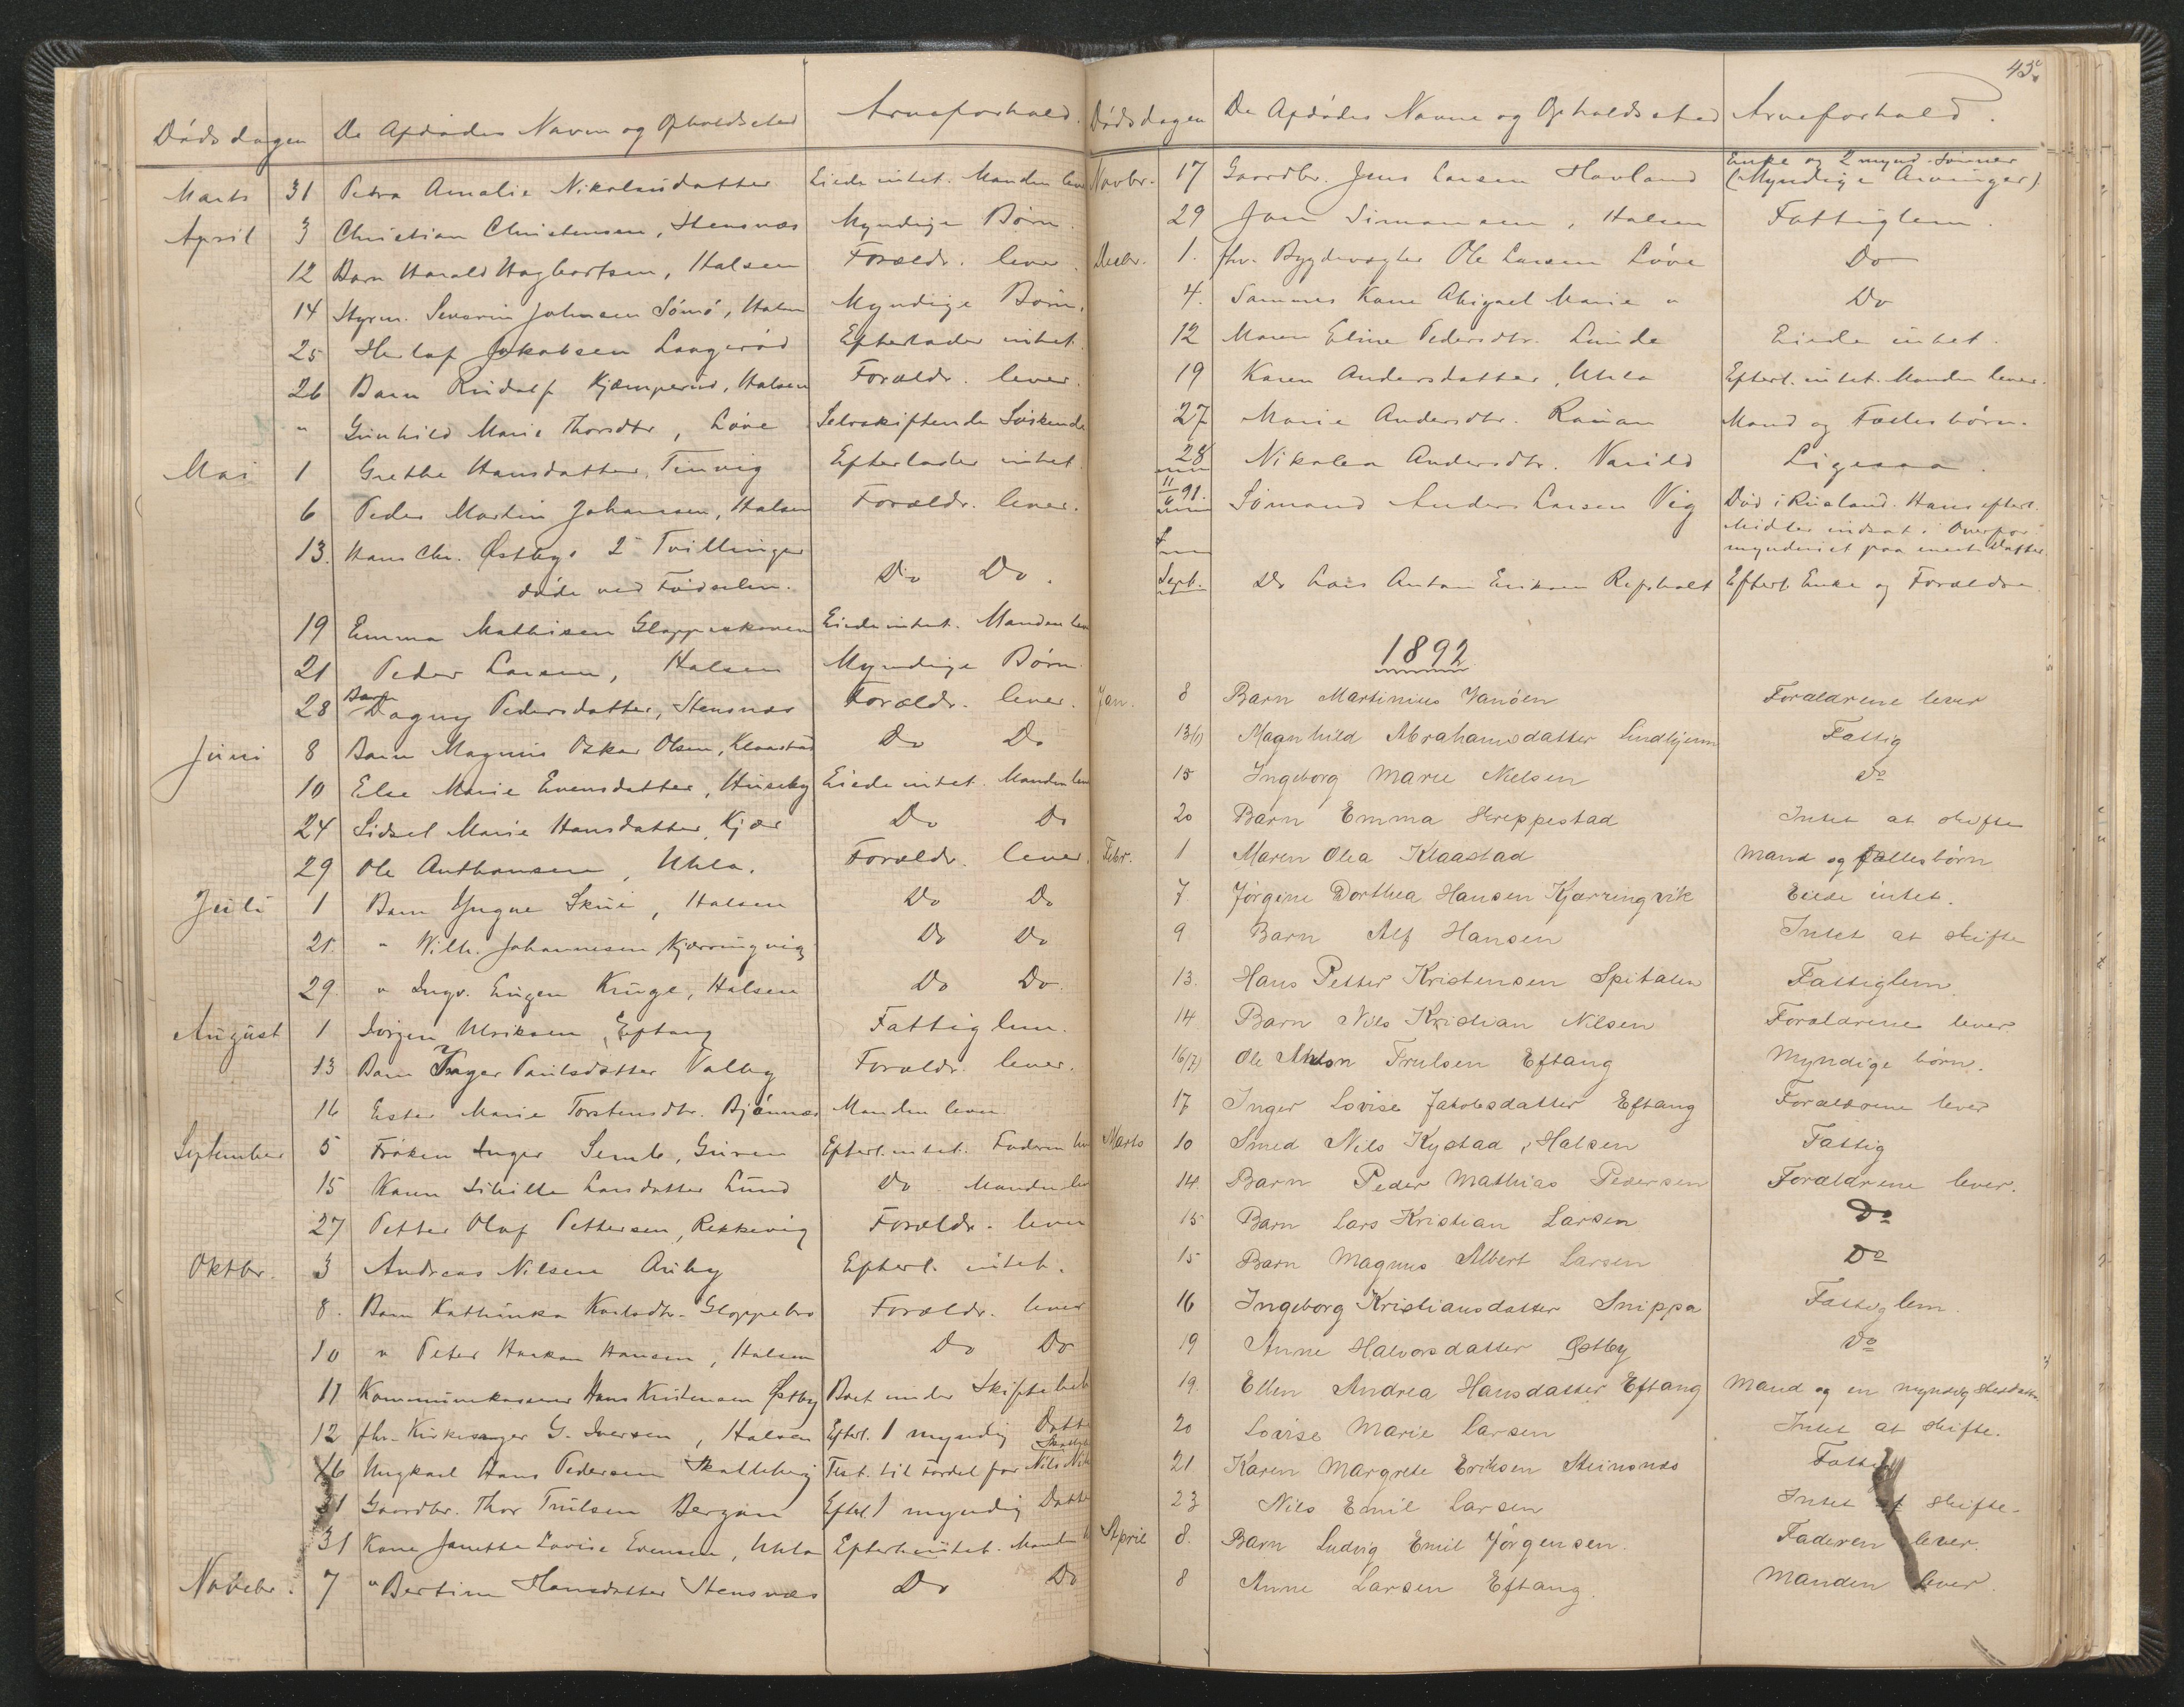 Dödsdagen De Afdødes Navn og Opholdssted Arveforhold.
Marts 31 Petra Amalie Nikolaisdatter Eiede intet. Manden lever
April 3 Christian Christensen, Stensnæs Myndige Børn.
12 Barn Harald Hagbartsen, Halsen Forældr. lever.
14 Styrm. Severin Johnsen Sömö, Halsen Myndige Börn.
25 Herlof Jakobsen Laageröd Efterlader intet.
26 Barn Rudolf Kjæmperud, Halsen Forældr. lever.
" Gunhild Marie Thorsdtr, Löve Selvskiftende Söskende
Mai 1 Grethe Hansdatter, Tinvig Efterlader intet.
6 Peder Martin Johansen, Halsen Forældr. lever.
13. Hans Chr. Østbys 2 Tvillinger
döde ved Födselen. Do Do.
19 Emma Mathisen Gloppeskoven Eiede intet. Manden lever
21 Peder Larsen, Halsen Myndige Börn
28 Barn Dagny Pedersdatter, Stensnæs Forældr. lever.
Juni 8 Barn Magnus Oskar Olsen, Klaastad Do Do
10 Else Marie Evensdatter, Huseby Eiede intet. Manden lever
24 Sidsel Marie Hansdatter, Kjær Do Do
29 Ole Anthonsen, Uhla. Forældr. lever.
Juli 1 Barn Yngve Skui, Halsen Do Do
21. " Wilh. Johannesen Kjærringvig Do Do
29. " Ingv. Eugen Kruge, Halsen Do Do.
August 1 Jörgen Ulriksen, Eftang Fattiglem.
13 Barn Inger Paulsdatter Valby Forældr. lever.
16 Ester Marie Torstensdtr. Bjönnes Manden lever
September 5 Fröken Inger Semb, Guren Efterl. intet. Faderen lev
15 Karen Sibille Larsdatter Lund Do Manden lev
27 Petter Olaf Pettersen, Rekkevig Forældr. lever
Oktbr. 3 Andreas Nilsen Auby Efterl. intet.
8. Barn Kathinka Karlsdtr. Gloppebro Forældr. lever
10 " Peter Haakon Hansen, Halsen Do Do
11 Kommunekasserer Hans Kristensen Østby Boet under Skiftebeh
12 fhv. Kirkesanger G. Iversen, Halsen Efterl. 1 myndig Datter
16 Ungkarl Hans Pedersen Skalleberg Test. til Fordel for Nils Nils
21 Gaardbr. Thor Trulsen Bergan Efterl. 1 myndig Datter
31 Kone Janette Lovise Evensen, Uhla Efterl. intet. Manden l
Novebr. 7 " Bertine Hansdatter Stensnæs Do Do
45.
Dödsdagen De Afdødes Navne og Opholdssted Arveforhold.
Novbr. 17 Gaardbr. Jens Larsen Havland Enke og 2 mynd. Sönner
(Myndige Arvinger).
29 Jan Simonsen, Halsen Fattiglem.
Decbr. 1. fhv. Bygdevægter Ole Larsen Löve Do
4. Sammes Kone Abigael Marie " Do
12 Maren Eline Pedersdtr. Lunde Eiede intet.
19 Karen Andersdatter, Uhla Efterl. intet. Manden lever.
27 Marie Andersdtr. Rauan Mand og Fællesbörn.
28 Nikolea Andersdtr. Varild Ligesaa.
11/6 91. Sömand Anders Larsen Vig Död i Rusland. Hans efterl.
Midler indsat i Overfor-
mynderiet paa eneste Datter
Septb. Do Lars Anton Eriksen Refsholt Efterl. Enke og Forældre
1892
Jan. 8 Barn Martinius Janöen Forældrene lever
13(?) Magnhild Abrahamsdatter Lindhjem Fattig
15 Ingeborg Marie Nielsen Do
20 Barn Emma Skreppestad Intet at skifte
Febr. 1 Maren Olea Klaastad Mand og fællesbörn
7 Jörgine Dorthea Hansen Kjærringvik Eiede intet.
9 Barn Alf Hansen Intet at skifte
13. Hans Petter Kristensen Spitalen Fattiglem.
14 Barn Nils Kristian Nilsen Forældrene lever
16(?) Ole Anton Trulsen Eftang Myndige börn.
17 Inger Lovise Jakobsdatter Eftang Forældrene lever
Marts 10 Smed Nils Kystad, Halsen Fattig
14 Barn Peder Mathias Pedersen Forældrene lever.
15 Barn Lars Kristian Larsen Do
15 Barn Magnus Albert Larsen Do
16 Ingeborg Kristiansdatter Snippa Fattiglem.
19 Anne Halvorsdatter Østby Do
19. Ellen Andrea Hansdatter Eftang Mand og en myndig
20 Lovise Marie Larsen Intet at skifte.
21 Karen Margrete Eriksen Steinsnæs Fattig
23 Nils Emil Larsen Intet at skifte.
April 8. Barn Ludvig Emil Jörgensen. Faderen lever.
8 Anne Larsen Eftang. Manden lever.